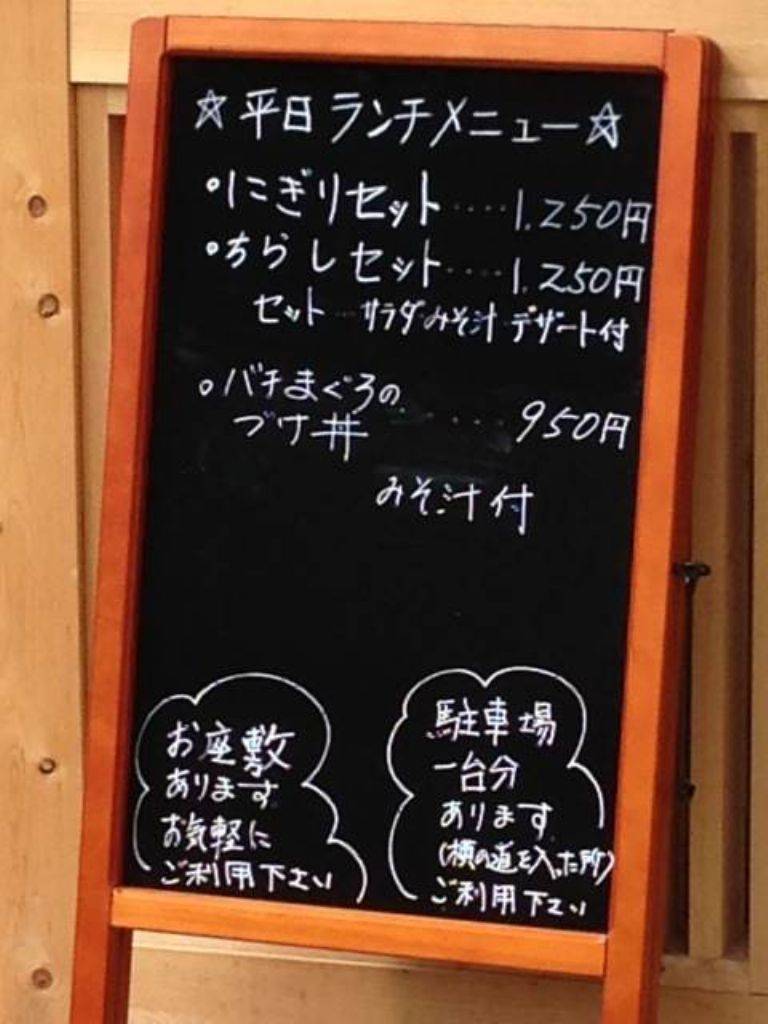 ☆平日ランチメニュー☆
・にぎりセット‥‥1,250円
・ちらしセット‥‥1,250円
セット‥サラダみそ汁デザート付
・バチまぐろの
づけ丼‥‥950円
みそ汁付
お座敷
あります
お気軽に
ご利用下さい
駐車場
一台分
あります
(横の道を入った所)
ご利用下さい